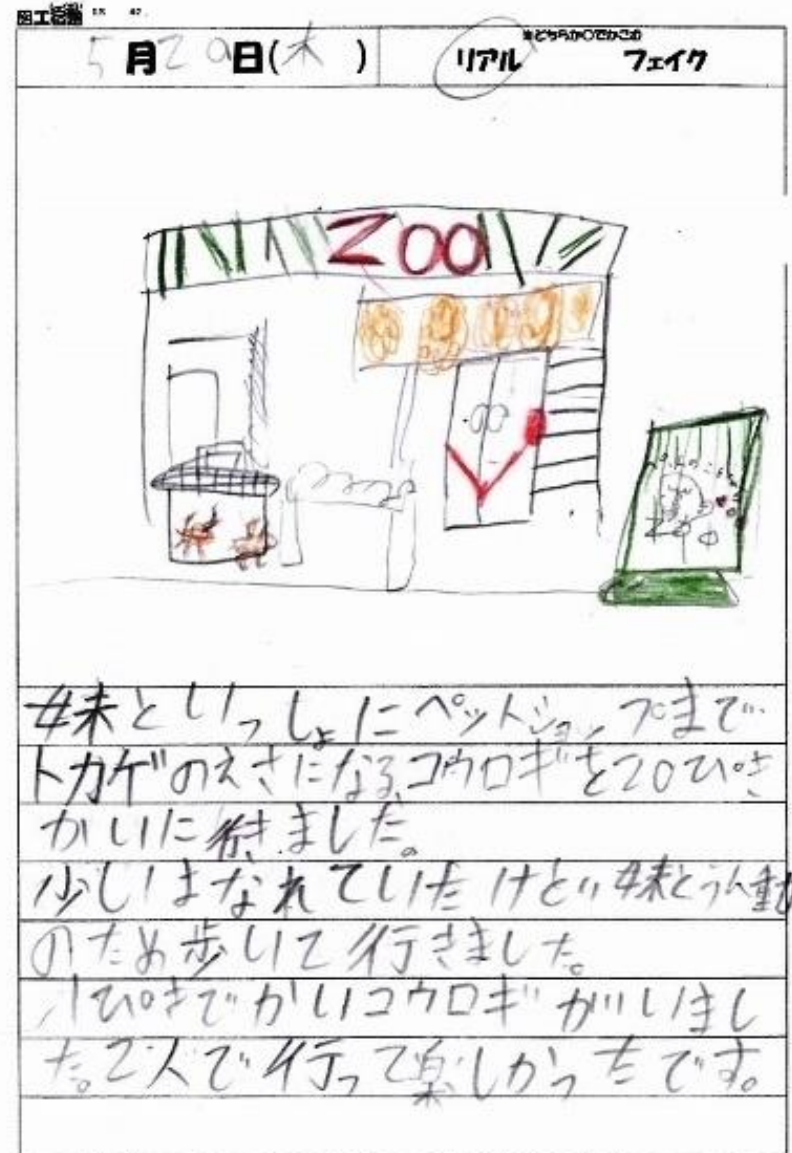 5月20日(木)
※どちらか○でかこむ
リアル フェイク
ZOO
妹といっしょにペットショップまで
トカゲのえさになるコウロギを20ぴき
かいに行きました。
少しはなれていたけど妹とうん動
のため歩いて行きました。
1ぴきでかいコウロギがいまし
た。2人で行って楽しかったです。